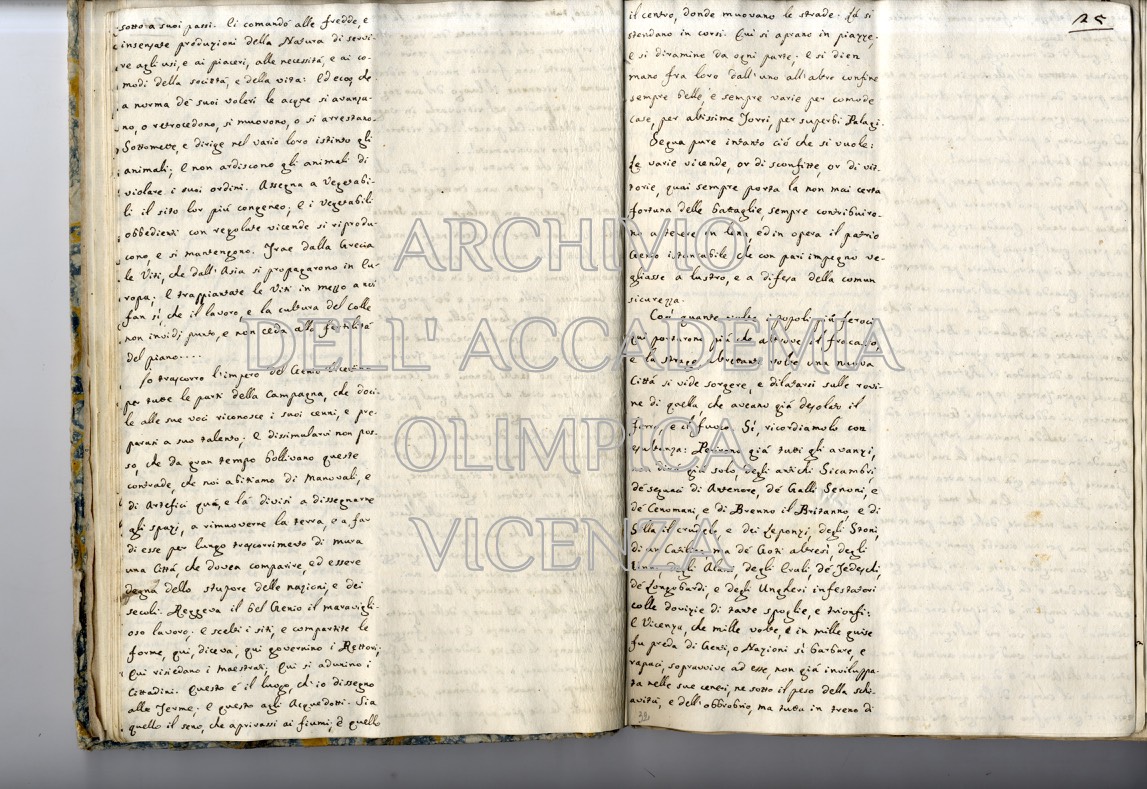 sotto a suoi passi. Ei comandò alle fredde, e
insensate produzioni della Natura di servi-
re agli usi, e ai piaceri, alle necessità, e ai co-
modi della società, e della vita: Ed ecco che
a norma de' suoi voleri le acque si avanza-
no, o retrocedono, si muovono, o si arrestano.
Sottomette, e dirige nel vario loro istinto gli
animali; E non ardiscono gli animali di
violare i suoi ordini. Assegna a Vegetabi-
li il sito lor più congeneo; E i Vegetabili
obbedienti con regolate vicende si riprodu-
cono, e si mantengono. Trae dalla Grecia
le Viti, che dall'Asia si propagarono in Eu-
ropa; E trappiantate le Viti in mezzo a noi
fan sì, che il lavoro, e la cultura del Colle
non invidj punto, e non ceda alla fertilità
del piano....
Io trascorro l'impero del Genio
per tutte le parti della Campagna, che doci-
le alle sue voci riconosce i suoi cenni, e pre-
parasi a suo talento; E dissimularvi non pos-
so, che da gran tempo bollivano queste
contrade che noi abitiamo di Manovali, e
di Artefici quà, e là divisi a dissegnarne
gli spazj, a rimuoverne la terra, e a far
di esse per lungo trascorrimento di mura
una Città, che dovea comparire, ed essere
degna dello stupore delle nazioni, e dei
secoli. Reggeva il bel Genio il maravigli-
oso lavoro; E scelti i siti, e compartite le
forme, qui, diceva, qui governino i Rettori;
Qui risiedano i maestrati; Qui si adunino i
Cittadini. Questo è il luogo, ch'io dissegno
alle Terme; E questo agli Acquedotti. Sia
quello il seno, che aprirassi ai fiumi; E quello
25
il centro, donde muovano le strade. Ed si
stendano in corsi. Qui si aprano in piazze,
E si diramino da ogni parte; E si dien
mano fra loro dall'uno all'altro confine
sempre belle, e sempre varie per comode
case, per altissime Torri, per superbi Palagi.
Segua pure intanto ciò che si vuole:
Le varie vicende, or di sconfitte, or di vit-
torie, quai sempre porta la non mai certa
fortuna delle battaglie, sempre contribuiro-
no a tenere in lena, ed in opera il patrio
Genio istancabile che con pari impegno ve-
gliasse a lustro, e a difesa della comun
sicurezza.
Così quante volte i popoli più feroci
qui portarono più che altrove il fracasso,
e la strage, altrettante volte una nuova
Città si vide sorgere, e dilatarsi sulle rovi-
ne di quella, che aveano già desolato il
ferro, e il fuoco. Sì, ricordiamolo con
esultanza: Perirono già tutti gli avanzi,
non dirò già solo, degli antichi Sicambri,
de' seguaci di Antenore, de' Galli Senoni, e
de' Cenomani, e di Brenno il Britanno, e di
Silla il crudele, e dei Leponzj, degli Stonj,
di un Catilina ma de' Goti altresì, degli
Unni, degli Alani, degli Eruli, de' Tedeschi,
de' Longobardi, e degli Ungheri infestatori
colle dovizie di tante spoglie, e trionfi;
E Vicenza, che mille volte, e in mille guise
fu preda di Genti, o Nazioni sì barbare, e
rapaci, sopravvive ad esse non già inviluppa-
ta nelle sue ceneri, ne sotto il peso della schi-
avitù, e dell'obbrobrio, ma tutta in treno di
ARCHIVIO
DELL'ACCADEMIA
OLIMPICA
VICENZA